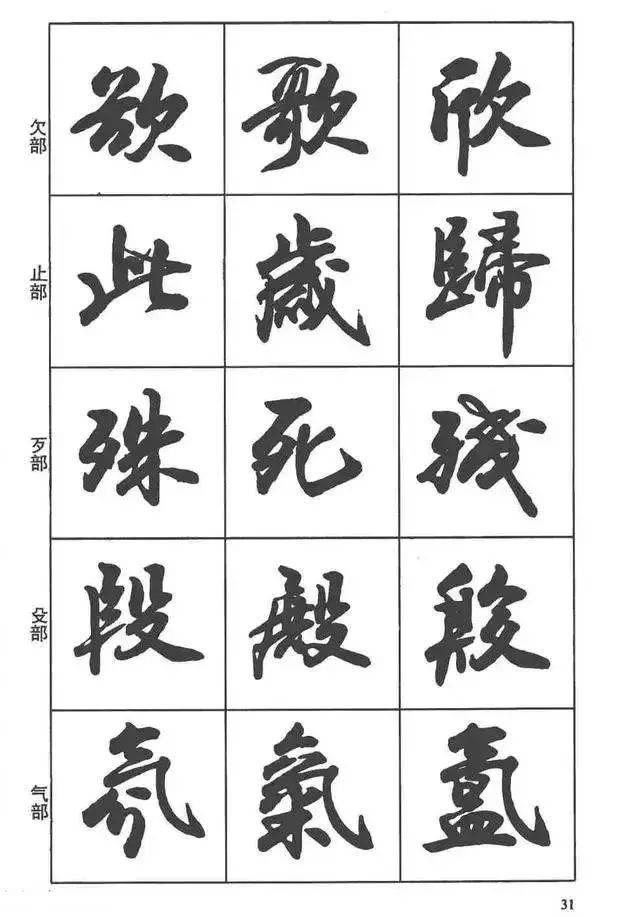 欠部 欲 歌 欣
止部 此 歲 歸
歹部 殊 死 殘
殳部 段 殿
气部 氛 氣 氳
31